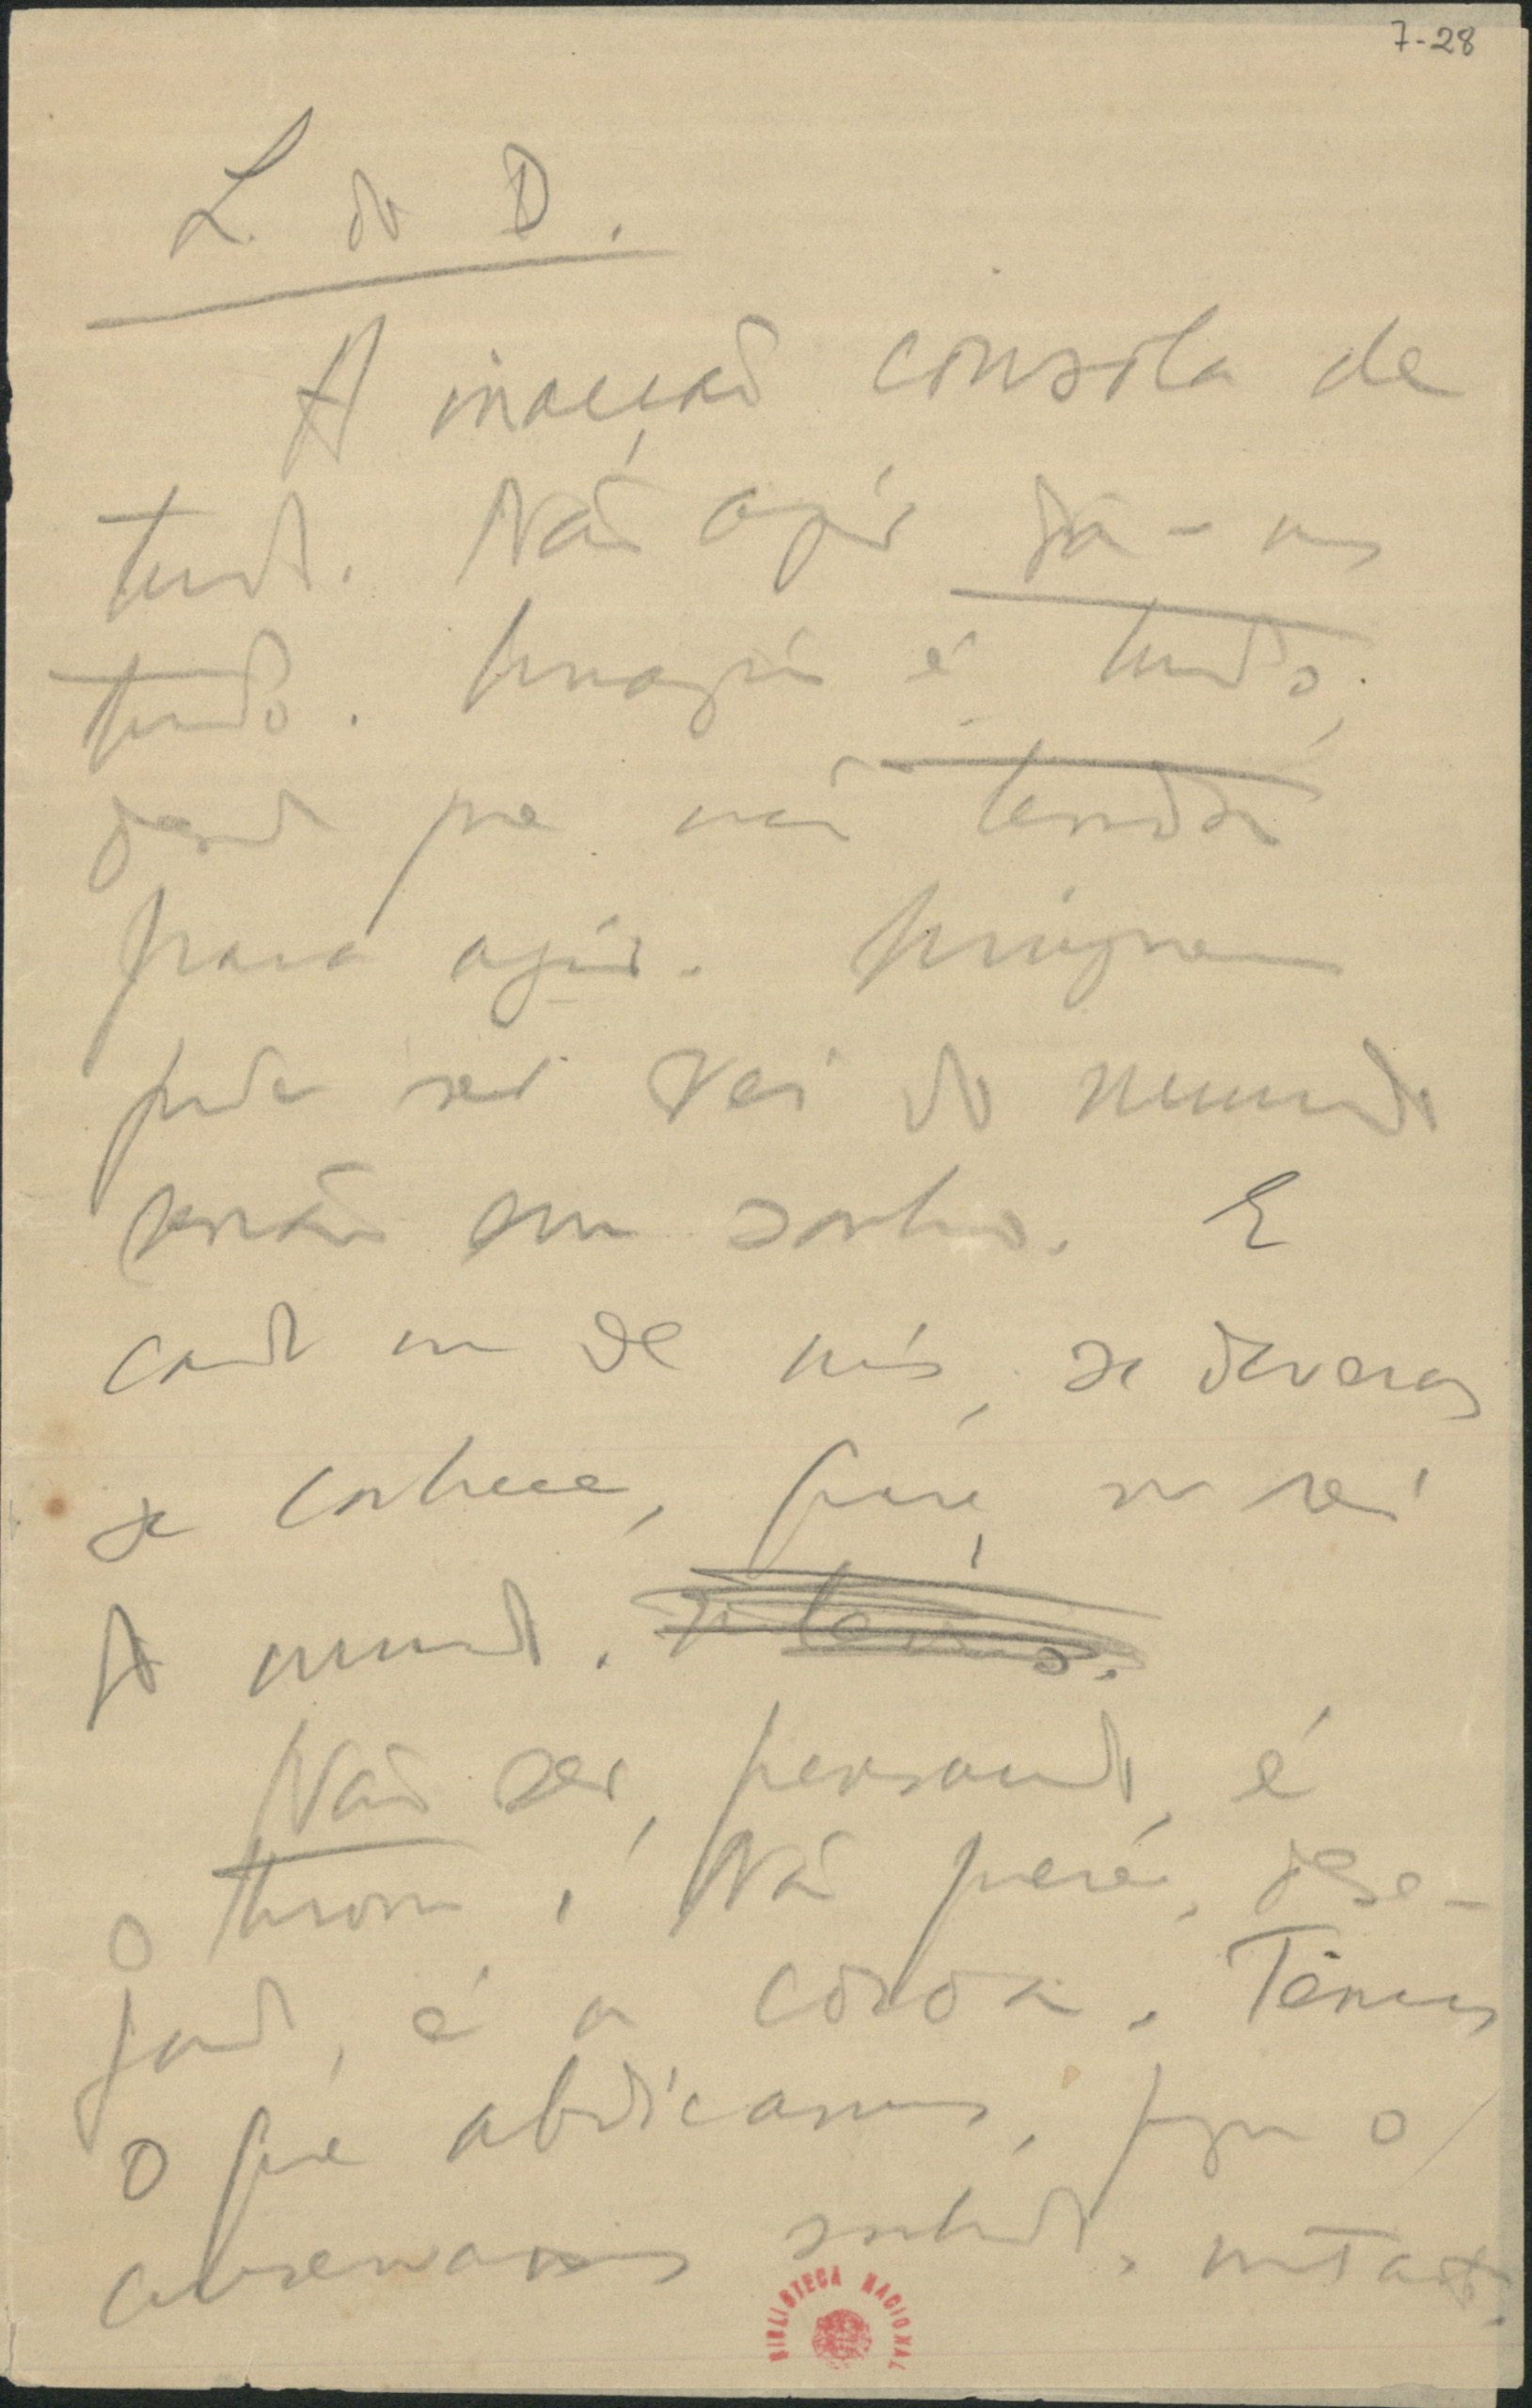 7-28
L. do D.
A inacção consola de
tudo. Não agir dá-nos
tudo. Imaginar é tudo,
desde que não tenda
para agir. Ninguem
pode ser rei do mundo
senão em sonho. E
cada um de nós, se deveras
se conhece, quere ser rei
do mundo.
Não ser, pensando, é
o throno. Não querer, dese-
jando, é a coroa. Temos
o que abdicamos, porque o
conservamos sonhado, intacto,
BIBLIOTECA NACIONAL